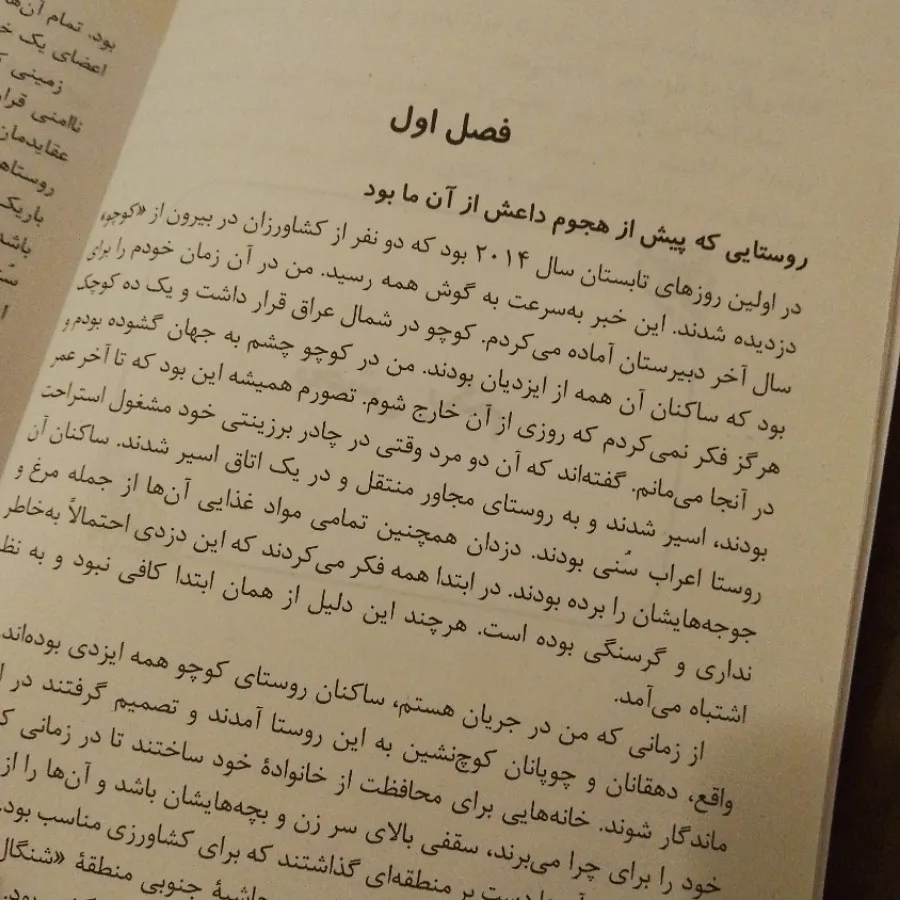 فصل اول
روستایی که پیش از هجوم داعش از آن ما بود
در اولین روزهای تابستان سال ۲۰۱۴ بود که دو نفر از کشاورزان در بیرون از «کوچو»
دزدیده شدند. این خبر به‌سرعت به گوش همه رسید. من در آن زمان خودم را برای
سال آخر دبیرستان آماده می‌کردم. کوچو در شمال عراق قرار داشت و یک ده کوچک
بود که ساکنان آن همه از ایزدیان بودند. من در کوچو چشم به جهان گشوده بودم و
هرگز فکر نمی‌کردم که روزی از آن خارج شوم. تصورم همیشه این بود که تا آخر عمر
در آنجا می‌مانم. گفته‌اند که آن دو مرد وقتی در چادر برزینتی خود مشغول استراحت
بودند، اسیر شدند و به روستای مجاور منتقل و در یک اتاق اسیر شدند. ساکنان آن
روستا اعراب سُنی بودند. دزدان همچنین تمامی مواد غذایی آن‌ها از جمله مرغ و
جوجه‌هایشان را برده بودند. در ابتدا همه فکر می‌کردند که این دزدی احتمالاً به‌خاطر
نداری و گرسنگی بوده است. هرچند این دلیل از همان ابتدا کافی نبود و به
اشتباه می‌آمد.
از زمانی که من در جریان هستم، ساکنان روستای کوچو همه ایزدی بوده‌اند.
واقع، دهقانان و چوپانان کوچ‌نشین به این روستا آمدند و تصمیم گرفتند در
ماندگار شوند. خانه‌هایی برای محافظت از خانوادهٔ خود ساختند تا در زمانی
خود را برای چرا می‌برند، سقفی بالای سر زن و بچه‌هایشان باشد و آن‌ها را از
دست بر منطقه‌ای گذاشتند که برای کشاورزی مناسب بود.
جنوبی منطقهٔ «شنگال
بود. تمام
اعضای یک
زمینی
ناامنی
عقایدمان
باریک
باشد